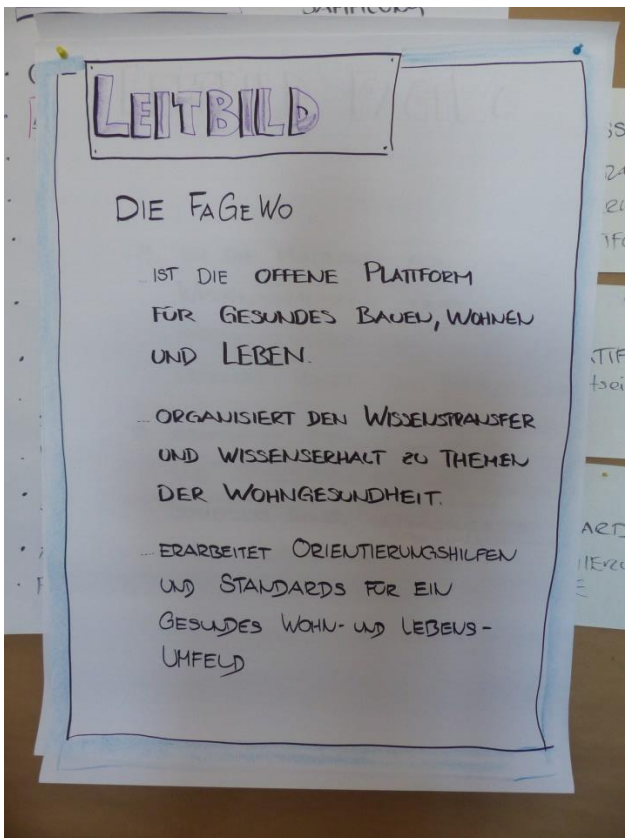 SAMMLUNG
LEITBILD
DIE FAGEWO
...IST DIE OFFENE PLATTFORM
FÜR GESUNDES BAUEN, WOHNEN
UND LEBEN.
...ORGANISIERT DEN WISSENSTRANSFER
UND WISSENSERHALT ZU THEMEN
DER WOHNGESUNDHEIT.
...ERARBEITET ORIENTIERUNGSHILFEN
UND STANDARDS FÜR EIN
GESUNDES WOHN- UND LEBENS-
UMFELD